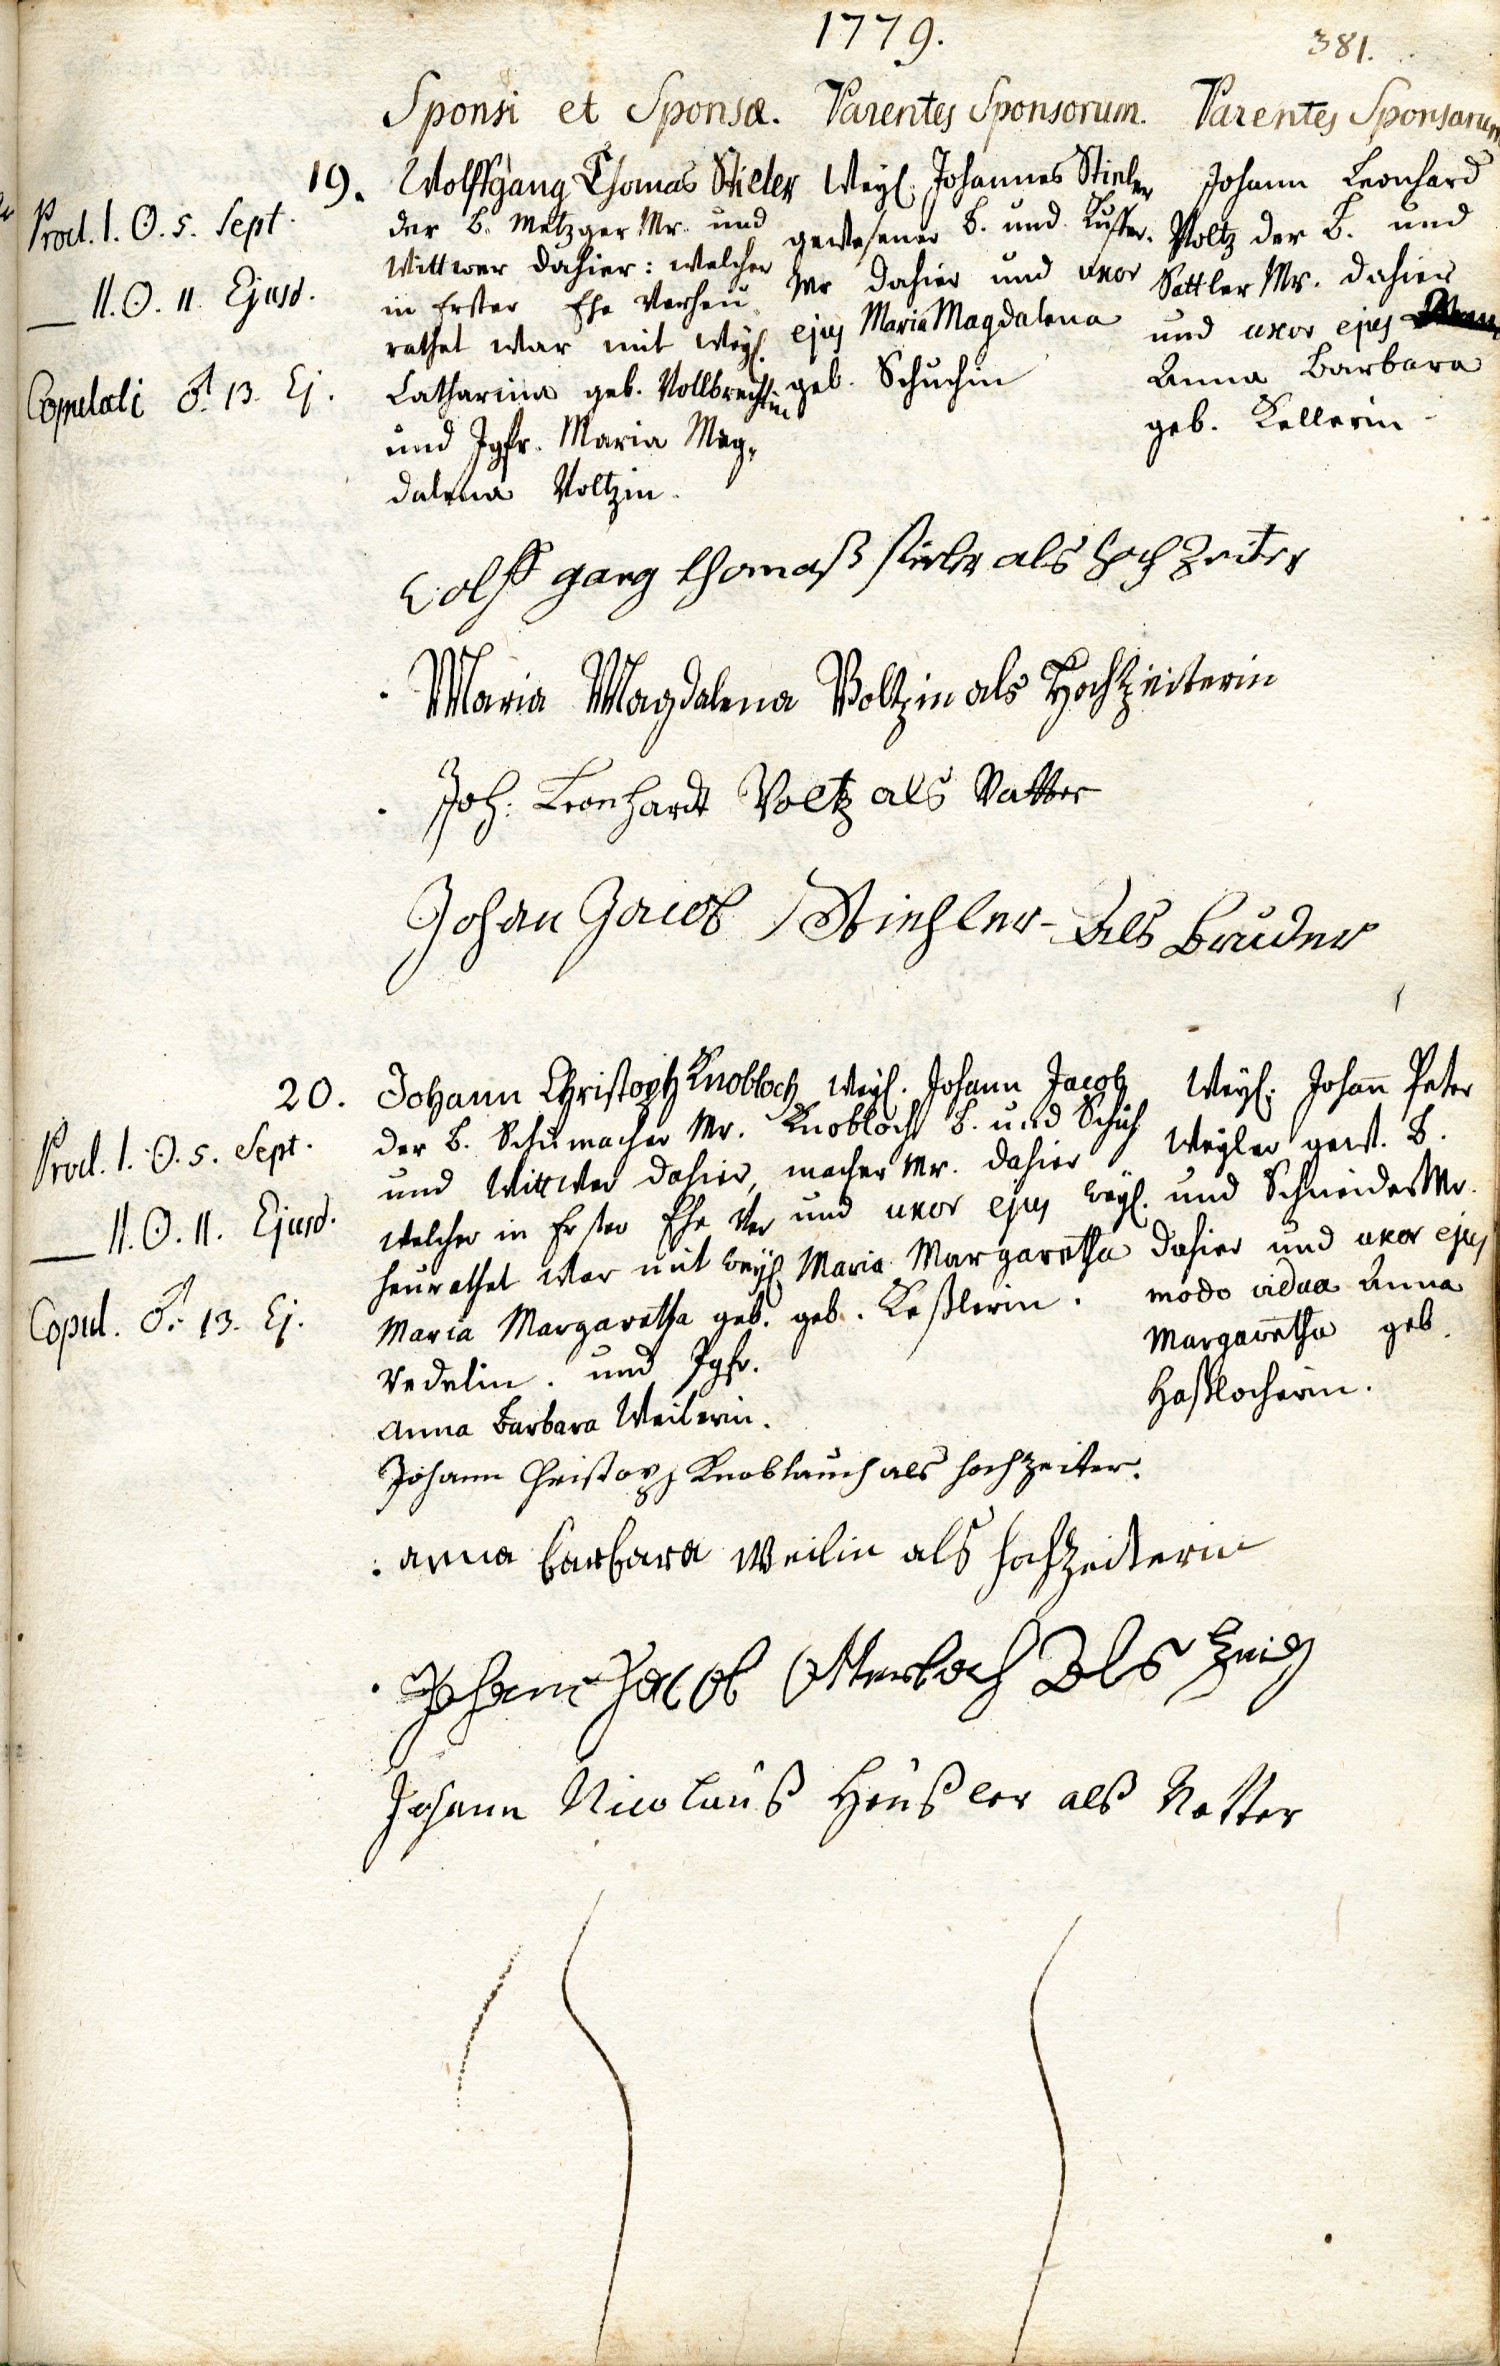 1779.
381.
Sponsi et Sponsæ. Parentes Sponsorum. Parentes Sponsarum
19.
Procl. I. ☉. 5. Sept.
— II. ☉. 11. Ejusd.
Copulati ♂. 13. Ej.
Wolffgang Thomas Stieler
der B. Metzger Mr. und
Wittwer dahier: welcher
in Erster Ehe verheu
rathet war mit weyl.
Catharina geb. Vollbrechtin
und Jgfr. Maria Mag„
dalena Voltzin.
Weyl. Johannes Stieler
gewesener B. und Kuffer.
Mr dahier und uxor
ejus Maria Magdalena
geb. Schuchin
Johann Leonhard
Voltz der B. und
Sattler Mr. dahier
und uxor ejus
Anna Barbara
geb. Kellerin
Wolff gang thomaß stieler als hoch Zeiter
Maria Magdalena Voltzin als Hochzeiterin
Joh: Leonhardt Voltz als Vatter
Johan Jacob Stiehler als Bruder
20.
Procl. I. ☉. 5. Sept.
— II. ☉. 11. Ejusd.
Copul. ♂. 13. Ej.
Johann Christoph Knobloch
der B. Schumacher Mr.
und Wittwer dahier,
welcher in Erster Ehe ver
heurathet war mit weyl.
Maria Margaretha geb.
Redelin. und Jgfr.
Anna Barbara Weilerin.
weyl. Johann Jacob
Knobloch B. und Schuh
macher Mr. dahier
und uxor ejus weyl.
Maria Margaretha
geb. Keßlerin.
Weyl. Johann Peter
Weyler gew. B.
und Schneider Mr.
dahier und uxor ejus
modo vidua Anna
Margaretha geb.
Haßlocherin.
Johann Christoph Knoblauch als hochzeiter.
anna barbara weilin als hochzeiterin
Johann Jacob Otterbach Als Zeig
Johann Nicolaus Heußler als Vatter